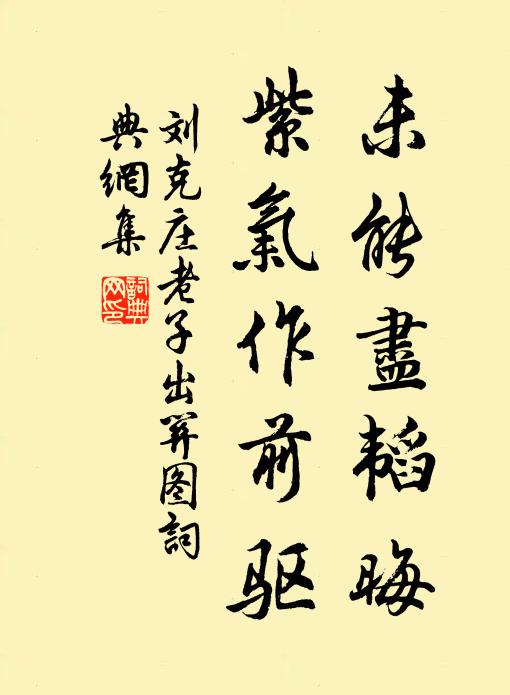 未能盡韬晦
紫氣作前驱
刘克庄老子出关图詞
典網集
詞典网印